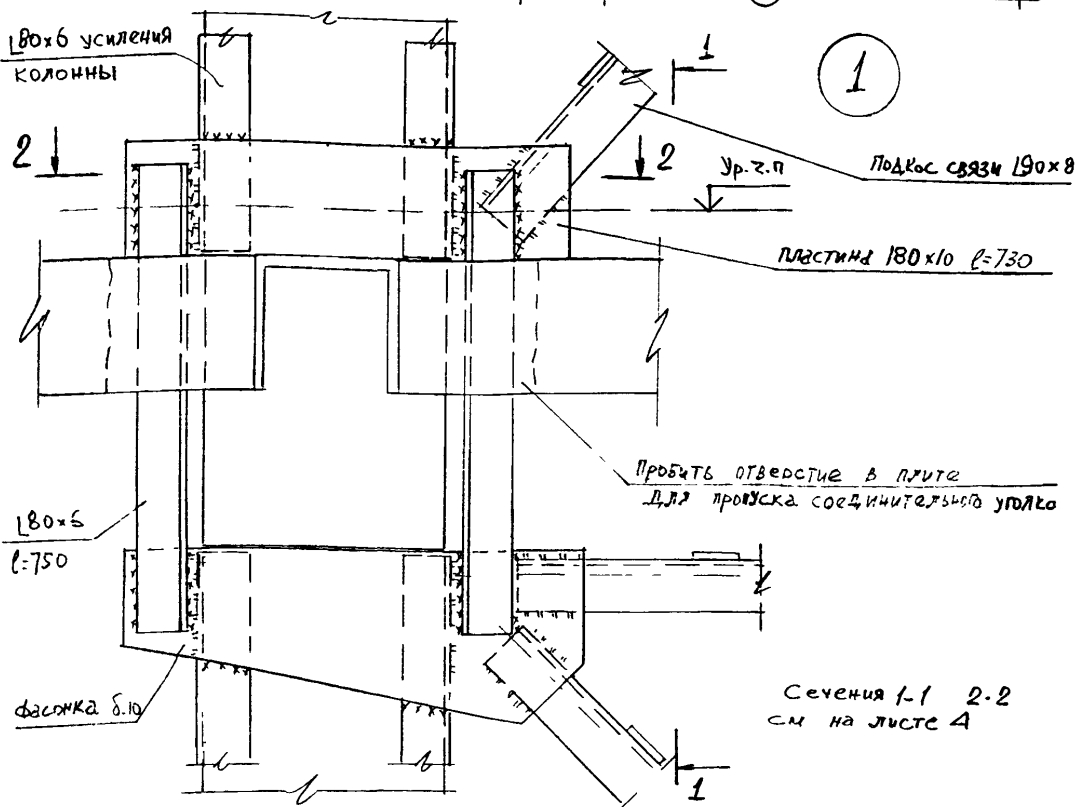 L80×6 усиления
колонны
1
1
2
2
Ур.ч.п
Подкос связи L90×8
пластина 180×10 l=730
Пробить отверстие в плите
для пропуска соединительного уголка
L80×6
l=750
фасонка δ.10
Сечения 1-1 2-2
см на листе 4
1